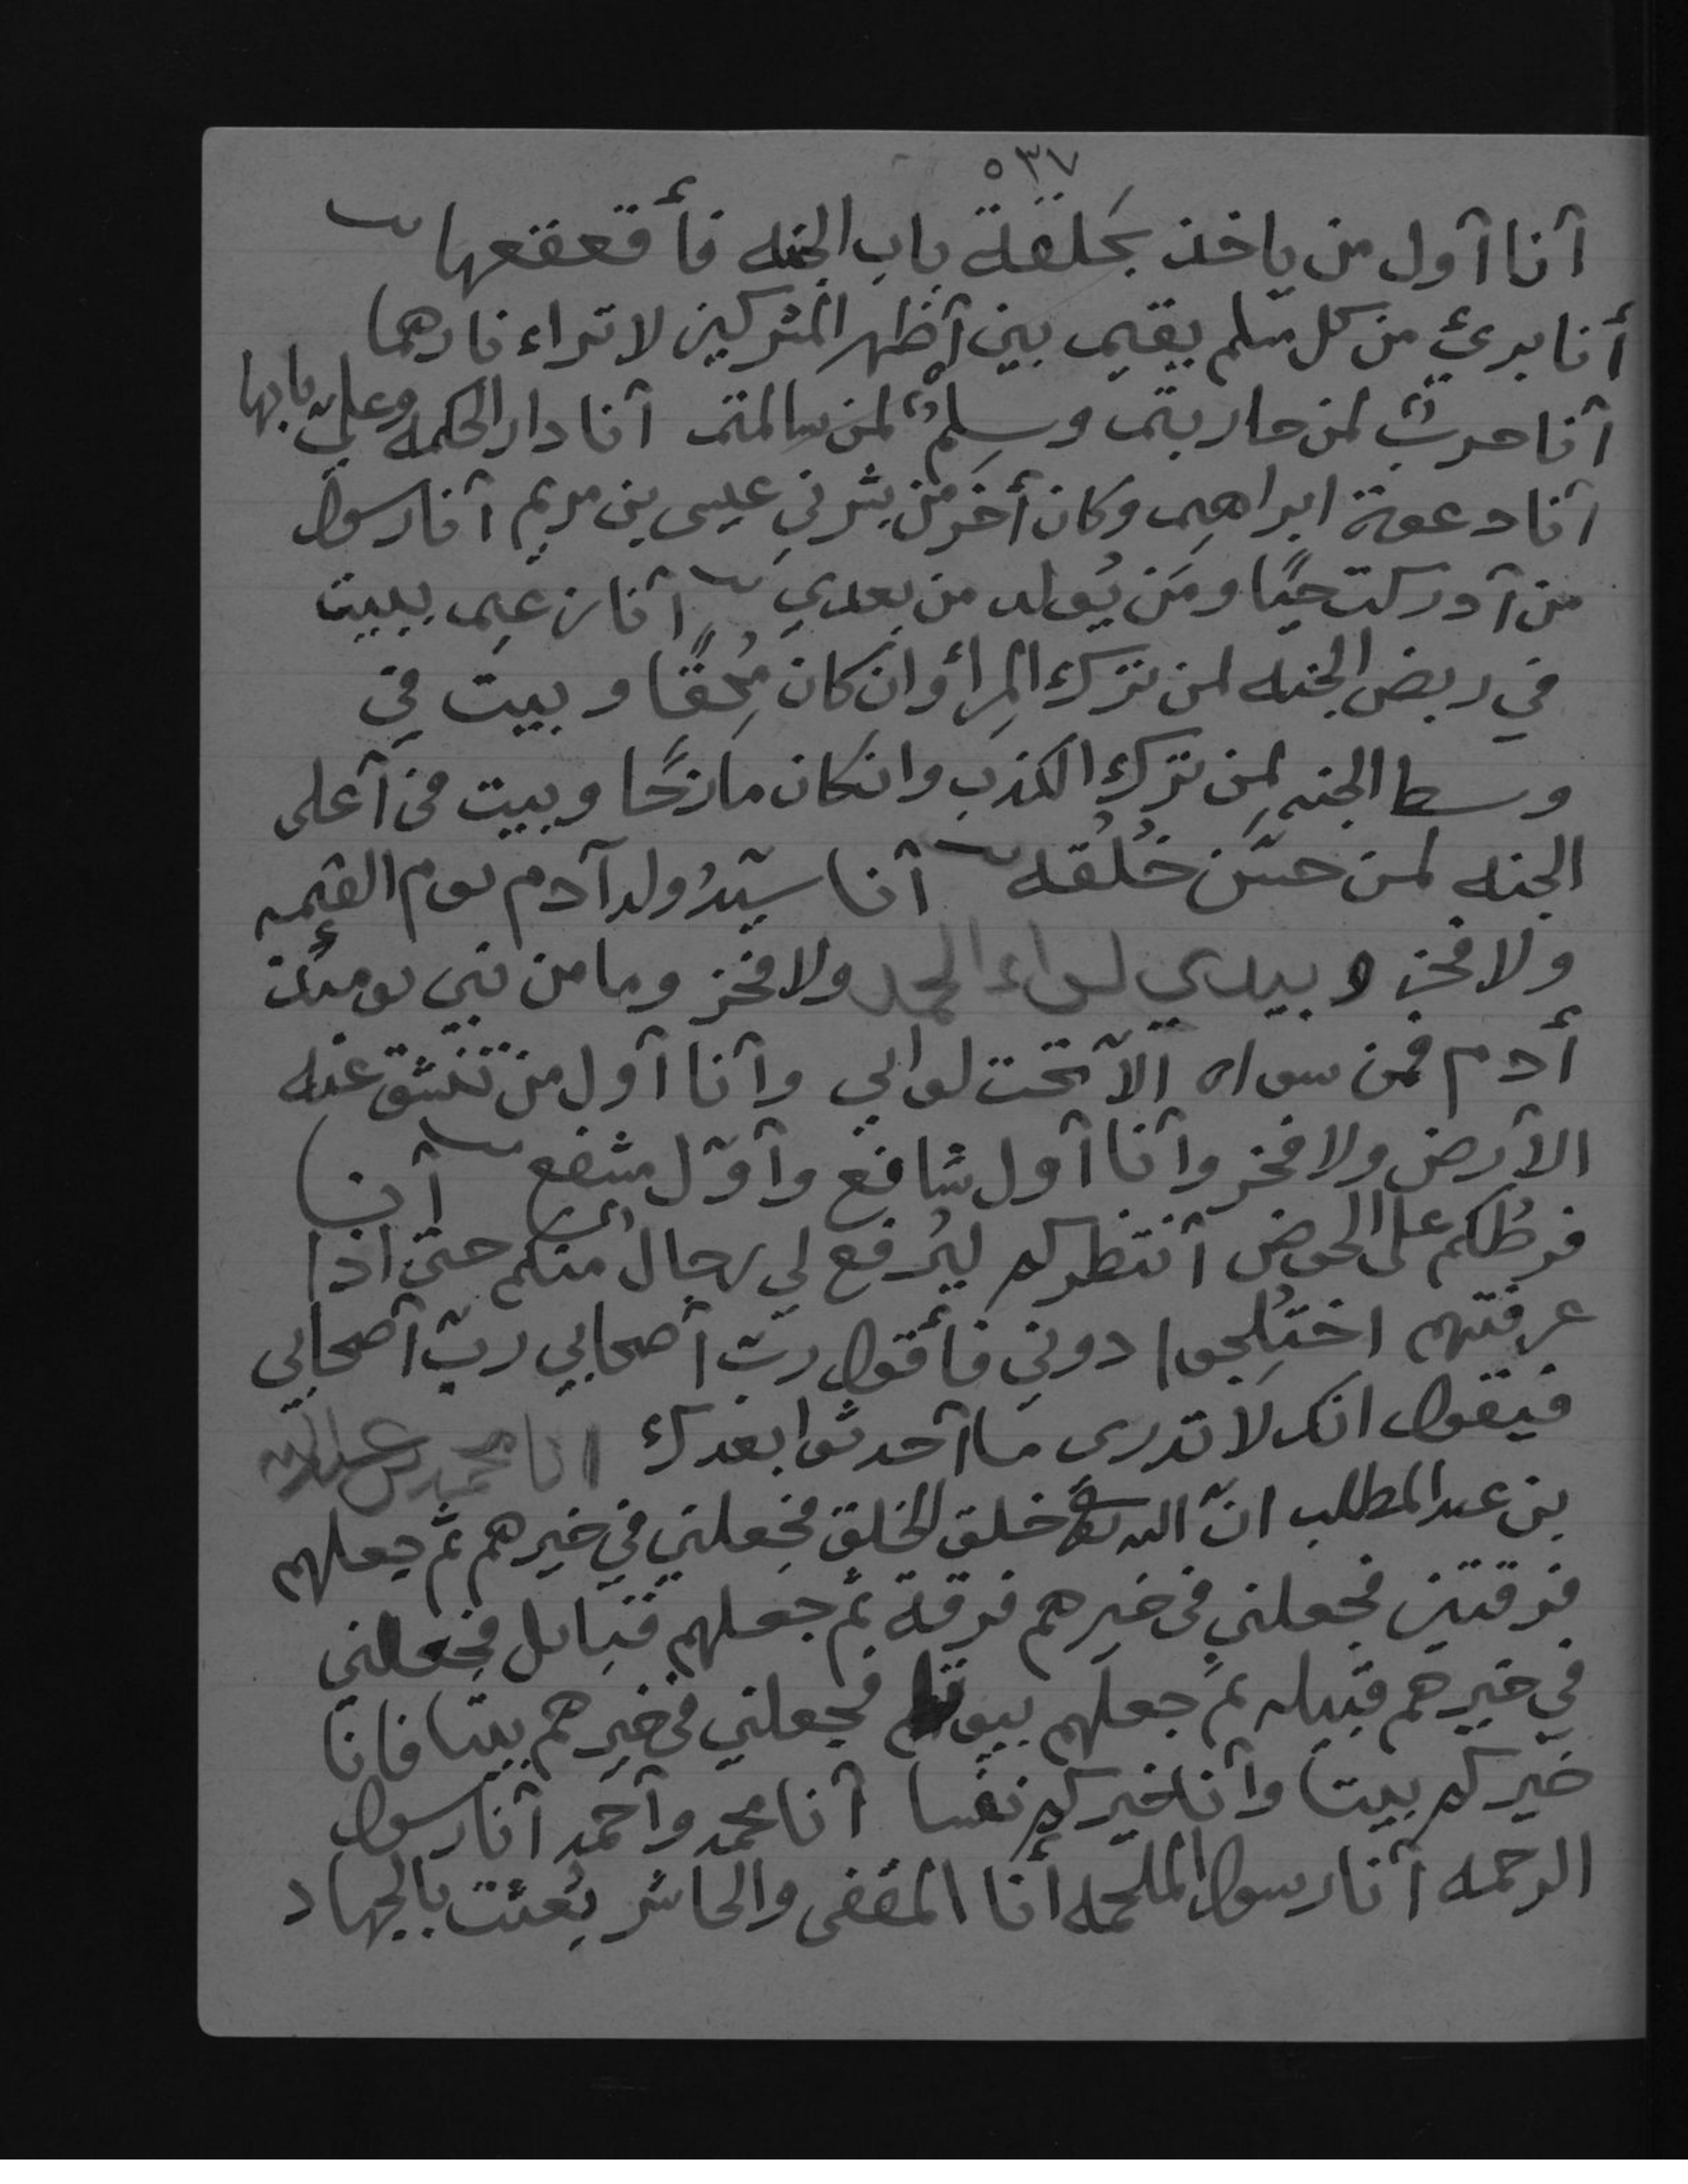 ٥٣٧
آنا آول من ياخذ بحَلقة باب الجنه فأقعقعها
أنا بريءٌ من كل مسلم يقيم بين آظهر المشركين لا تراء نارهما
آنا حربٌ لمن حاربتم وسِلمٌ لمن سالمتم آنا دار الحكمه وعليّ بابها
آنا دعوة ابراهيم وكان أخر من بشر بي عيسى بن مريم آنا رسول
من آدركت حيًا ومَن يُولد من بعدي آنا زعيم ببيت
في ربض الجنه لمن ترك المِراُ وان كان مُحِقًا وبيت في
وسط الجنه لمن ترك الكذب وانكان مازحًا وبيت في آعلى
الجنه لمن حسّن خُلُقه آنا سيّدُ ولد آدم يوم القيمه
ولا فخر وبيدي لواء الحمد ولا فخر وما من نبي يومئذ
أدم فمن سواه الآ تحت لوائي وآنا آول من تنشق عنه
الآرض ولا فخر وآنا آول شافع وآوّل مشفع آنا
فرطُكم على الحوض آنتظركم ليُرفع لي رجالٌ منكم حتى اذا
عرفتهم اختُلِجوا دوني فأقول ربّ آصحابي ربّ آصحابي
فيقول انك لا تدرى ما آحدثوا بعدك انا محمد بن عبدالله
بن عبد المطلب انّ الله تعالى خلق الخلق فجعلني في خيرهم ثم جعلهم
فرقتين فجعلني في خيرهم فرقة ثم جعلهم قبائل فجعلني
في خيرهم قبيله ثم جعلهم بيوتا فجعلني في خيرهم بيتا فانا
خيركم بيتا وآنا خيركم نفسا آنا محمد وآحمد آنا رسول
الرحمه آنا رسول الملحمه أنا المقفى والحاشر بُعِثت بالجهاد